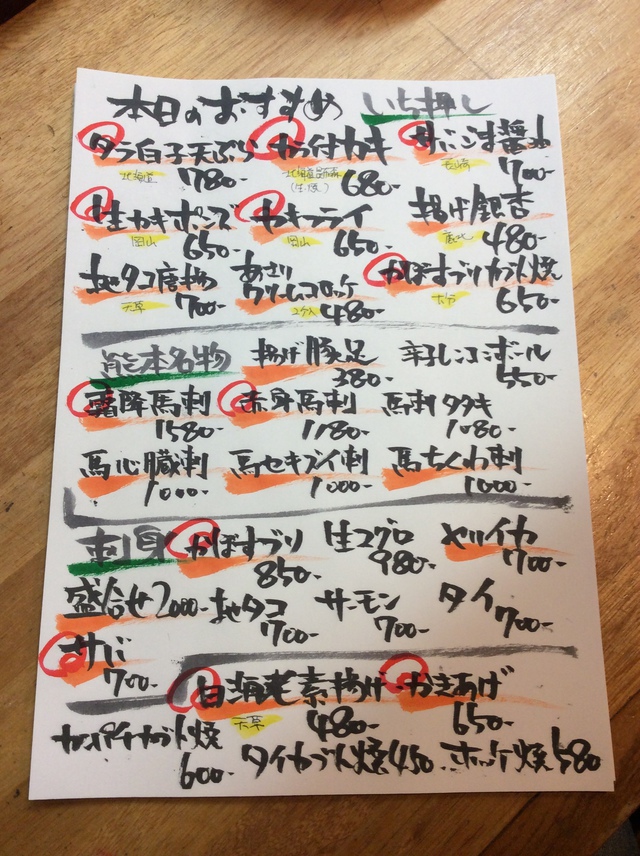 本日のおすすめ いち押し
タラ白子天ぷら カラ付カキ サバごま醤油
北海道 780- (生・焼) 680- 長崎 700-
生カキポンズ カキフライ 揚げ銀杏
岡山 650- 岡山 650- 480-
地タコ唐揚 あさりクリームコロッケ かぼすブリカブト焼
天草 700- 2ケ入 480- 650-
熊本名物 揚げ豚足 辛子レンコンボール
380- 550-
霜降馬刺 赤身馬刺 馬刺タタキ
1580- 1180- 1080-
馬心臓刺 馬セキズイ刺 馬ちくわ刺
1000- 1000- 1000-
刺身 かぼすブリ 生マグロ ヤリイカ
850- 980- 700-
盛合せ2000- 地タコ サーモン タイ
700- 700- 700-
サバ
700-
白海老素揚げ かきあげ
天草 480- 650-
カンパチカブト焼
600-
タイカブト焼450- ホッケ焼580